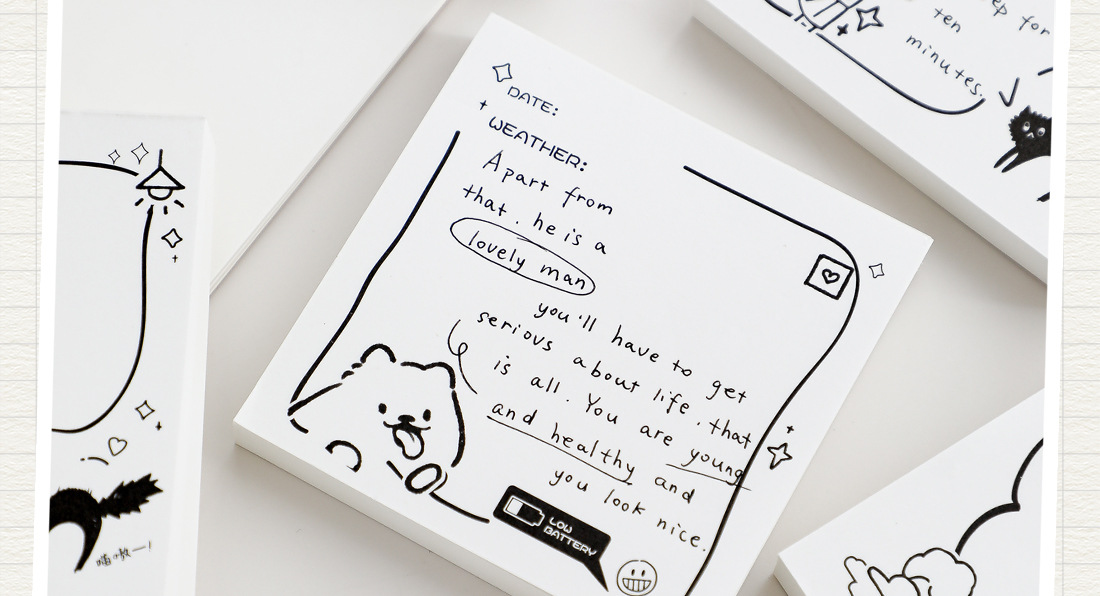 ep for
ten
minutes.
DATE:
WEATHER:
Apart from
that. he is a
lovely man
you'll have to get
serious about life. that
is all. You are young
and healthy and
you look nice.
LOW
BATTERY